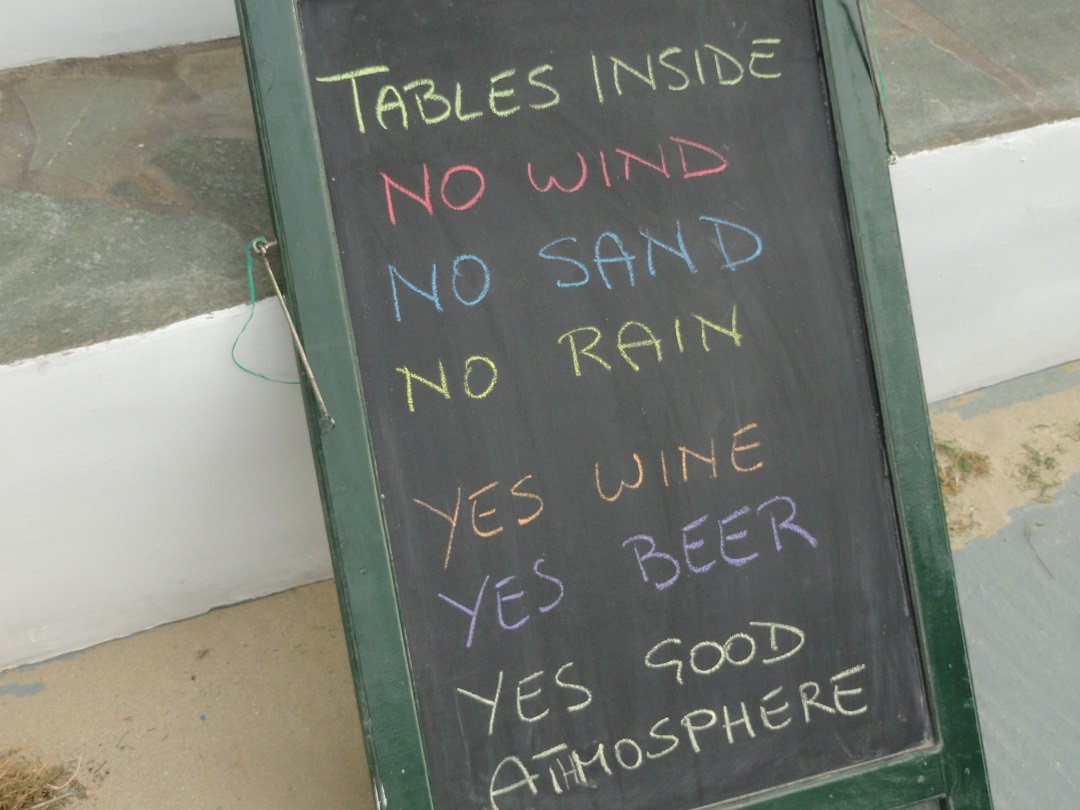 TABLES INSIDE
NO WIND
NO SAND
NO RAIN
YES WINE
YES BEER
YES GOOD
ATHMOSPHERE